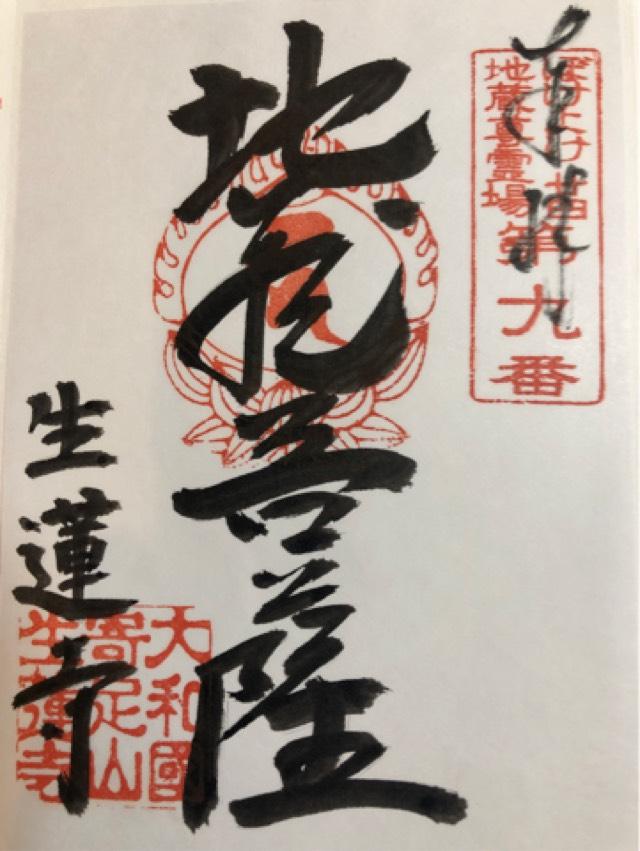 奉拝
ぼけよけ
地蔵尊霊場第九番
地蔵菩薩
生蓮寺
大和國
寄足山
生蓮寺